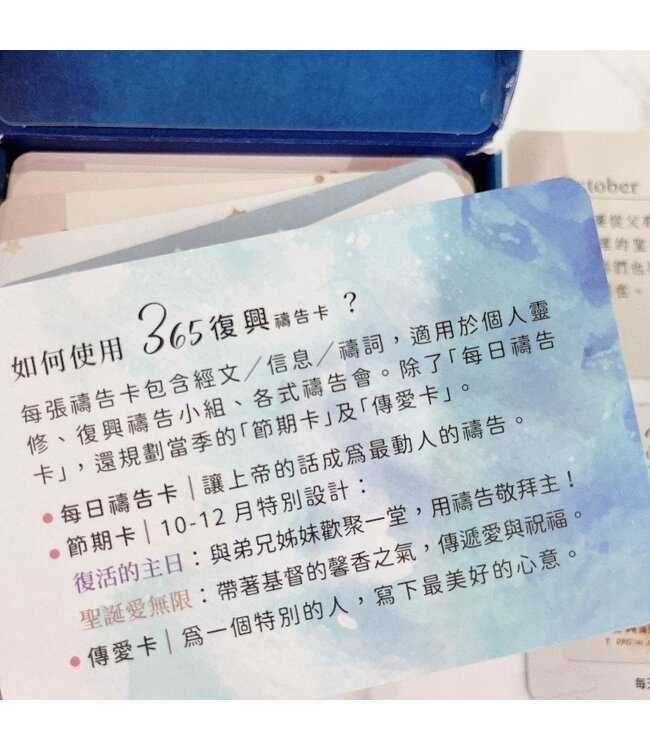 如何使用 365復興禱告卡？
每張禱告卡包含經文／信息／禱詞，適用於個人靈
修、復興禱告小組、各式禱告會。除了「每日禱告
卡」，還規劃當季的「節期卡」及「傳愛卡」。
• 每日禱告卡｜讓上帝的話成爲最動人的禱告。
• 節期卡｜10-12 月特別設計：
復活的主日：與弟兄姊妹歡聚一堂，用禱告敬拜主！
聖誕愛無限：帶著基督的馨香之氣，傳遞愛與祝福。
• 傳愛卡｜爲一個特別的人，寫下最美好的心意。
tober
從父
的
們也
在。
每